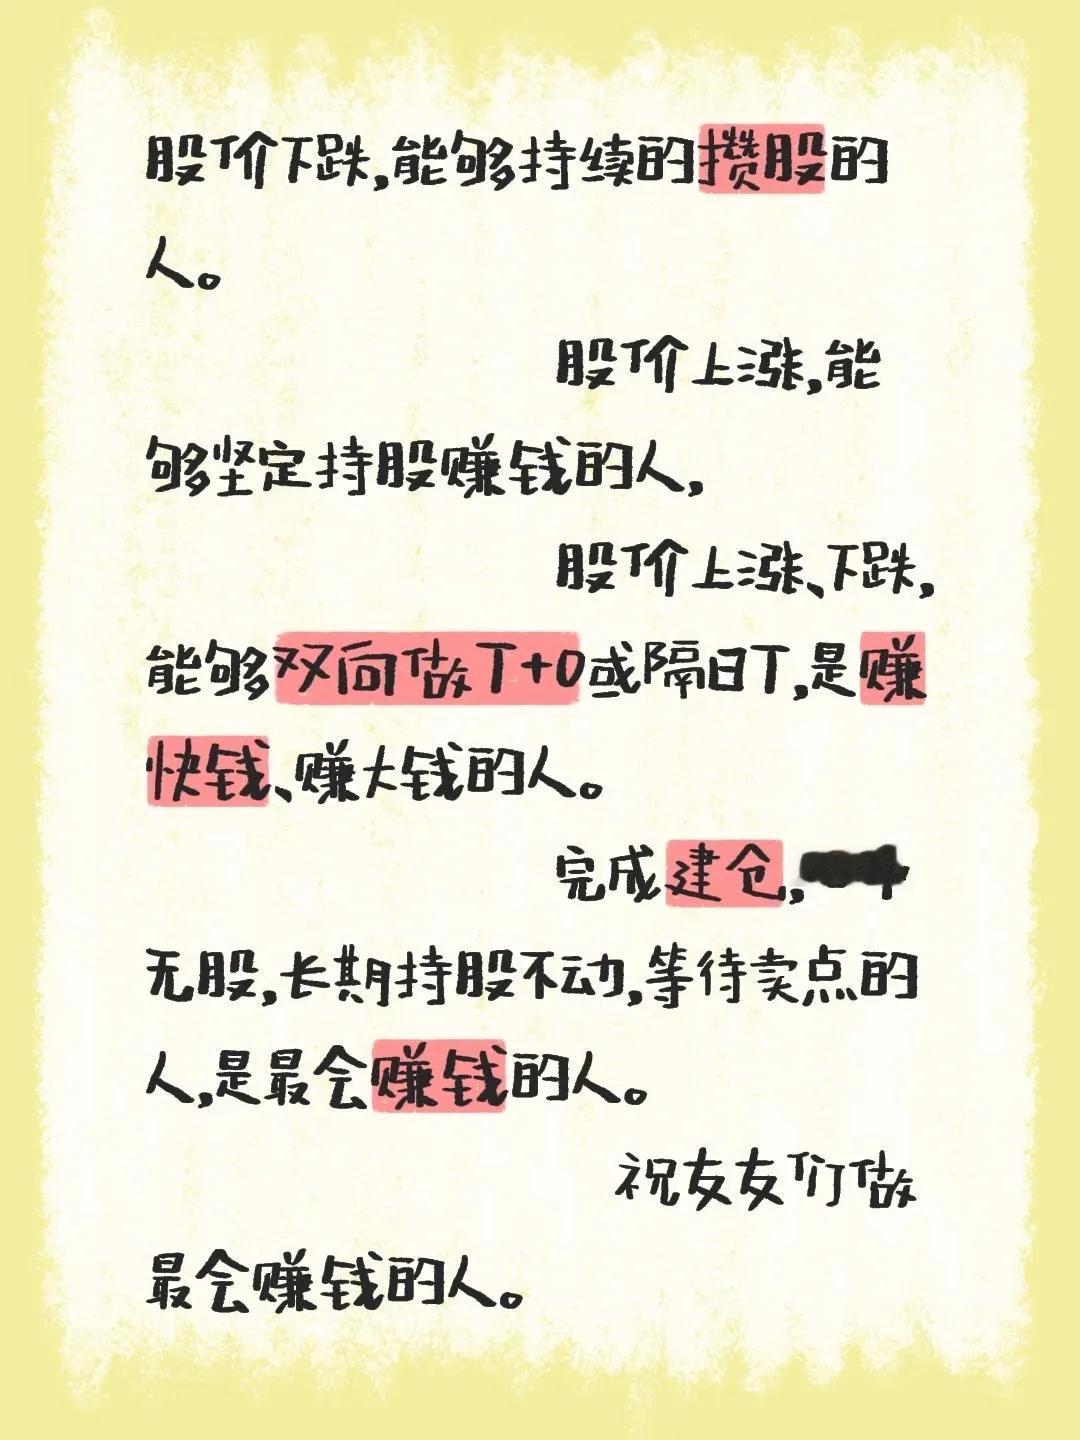 股价下跌,能够持续的攒股的
人。
股价上涨,能
够坚定持股赚钱的人,
股价上涨、下跌,
能够双向做T+0或隔日T,是赚
快钱、赚大钱的人。
完成建仓,
无股,长期持股不动,等待卖点的
人,是最会赚钱的人。
祝友友们做
最会赚钱的人。